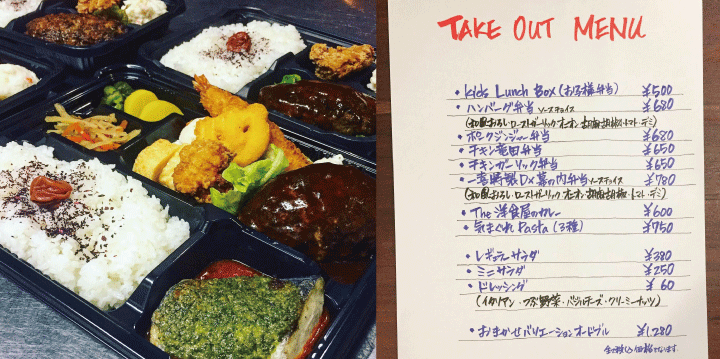 TAKE OUT MENU
・Kids Lunch Box (お子様弁当) ¥500
・ハンバーグ弁当 ソースチョイス ¥680
(和風おろし・ローストガーリックオニオン・胡麻胡椒・トマト・デミ)
・ポークジンジャー弁当 ¥680
・チキン竜田弁当 ¥650
・チキンガーリック弁当 ¥650
特製DX幕の内弁当 ソースチョイス ¥780
(和風おろし・ローストガーリックオニオン・胡麻胡椒・トマト・デミ)
・The 洋食屋のカレー ¥600
・気まぐれ Pasta (3種) ¥750
・レギュラーサラダ ¥380
・ミニサラダ ¥250
・ドレッシング ¥60
(イタリアン・つぶ野菜・バジルチーズ・クリーミーナッツ)
・おまかせバリエーションオードブル ¥1,280